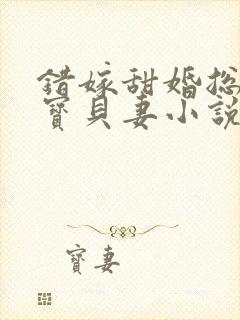 錯嫁甜婚總
寶貝妻小說
寶妻